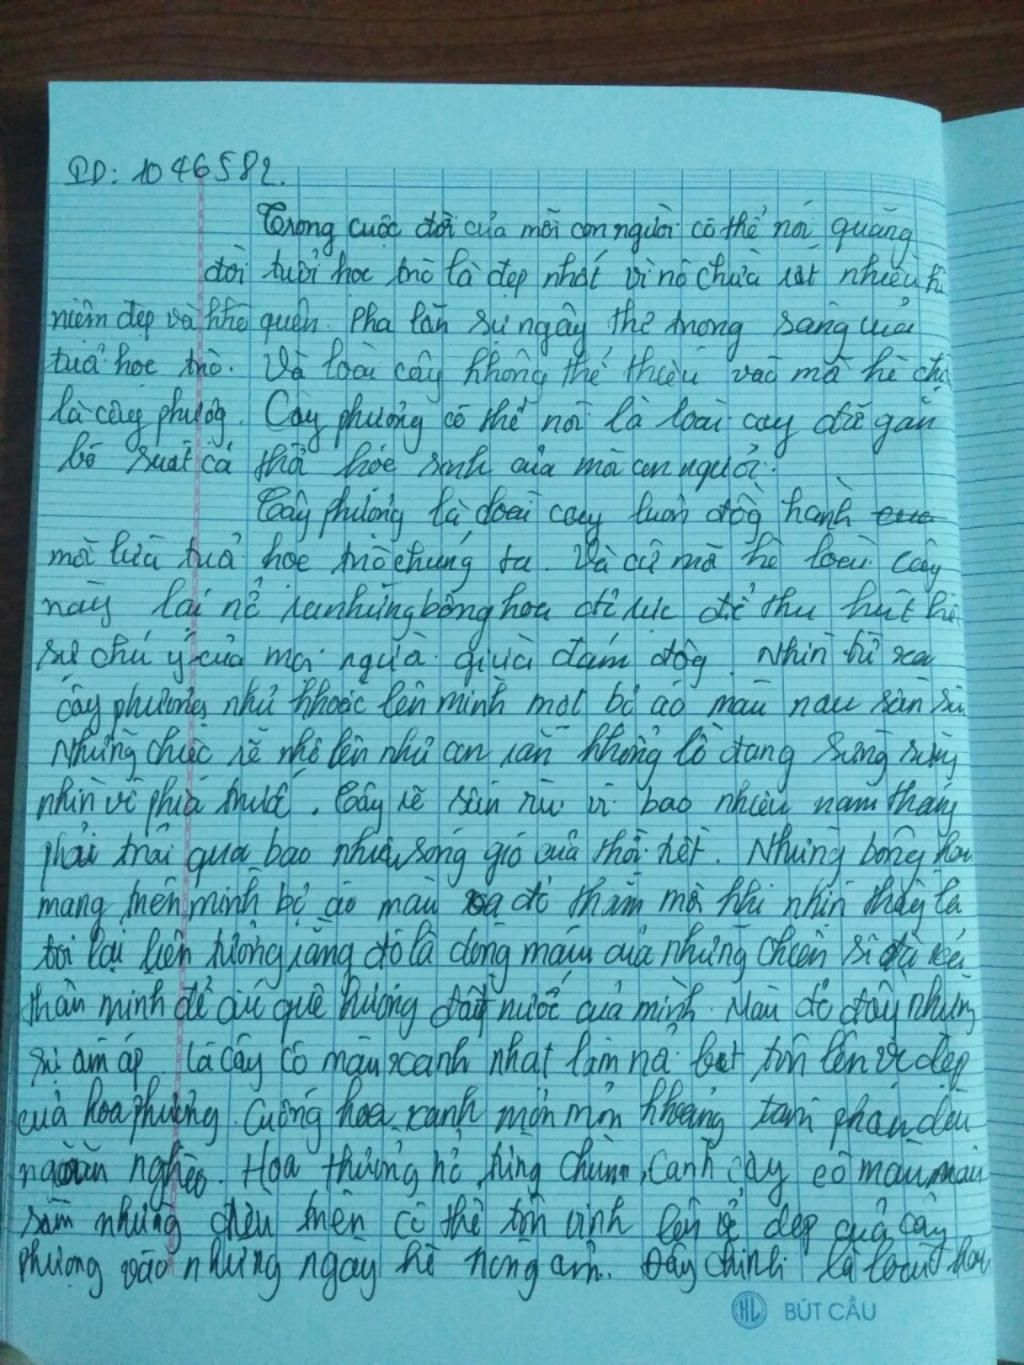 ID: 1046582.
Trong cuộc đời của mỗi con người có thể nói quãng
đời tuổi học trò là đẹp nhất vì nó chứa rất nhiều
niệm đẹp và khó quên. Pha lẫn sự ngây thơ trong sáng của
tuổi học trò. Và loài cây không thể thiếu vào mùa hè
là cây phượng. Cây phượng có thể nói là loài cây đã gắn
bó suốt cả thời học sinh của mỗi con người.
Cây phượng là loài cây luôn đồng hành
mỗi lứa tuổi học trò chúng ta. Và cứ mỗi hè loài cây
này lại nở những bông hoa đỏ rực để thu hút
sự chú ý của mọi người giữa đám đông. Nhìn từ xa
cây phượng như khoác lên mình một bộ áo màu nâu sần sùi
Những chiếc rễ nhô lên như con rắn khổng lồ đang sừng sững
nhìn về phía trước. Cây rễ sần rù vì bao nhiêu năm tháng
phải trải qua bao nhiêu sóng gió của thời tiết. Những bông hoa
mang trên mình bộ áo màu đỏ thắm mỗi khi nhìn thấy là
tôi lại liên tưởng rằng đó là dòng máu của những chiến sĩ đã
thân mình để cứu quê hương đất nước của mình. Màu đỏ đầy những
sự ấm áp. Lá cây có màu xanh nhạt làm tôn lên vẻ đẹp
của hoa phượng. Cuống hoa xanh mơn mởn khoảng tám phân đều
ngoằn nghèo. Hoa thường nở từng chùm, cành cây có màu nâu
sẫm những điều trên có thể tôn vinh lên vẻ đẹp của cây
phượng vào những ngày hè nóng ấm. Đây chính là loài hoa
HL BÚT CẦU